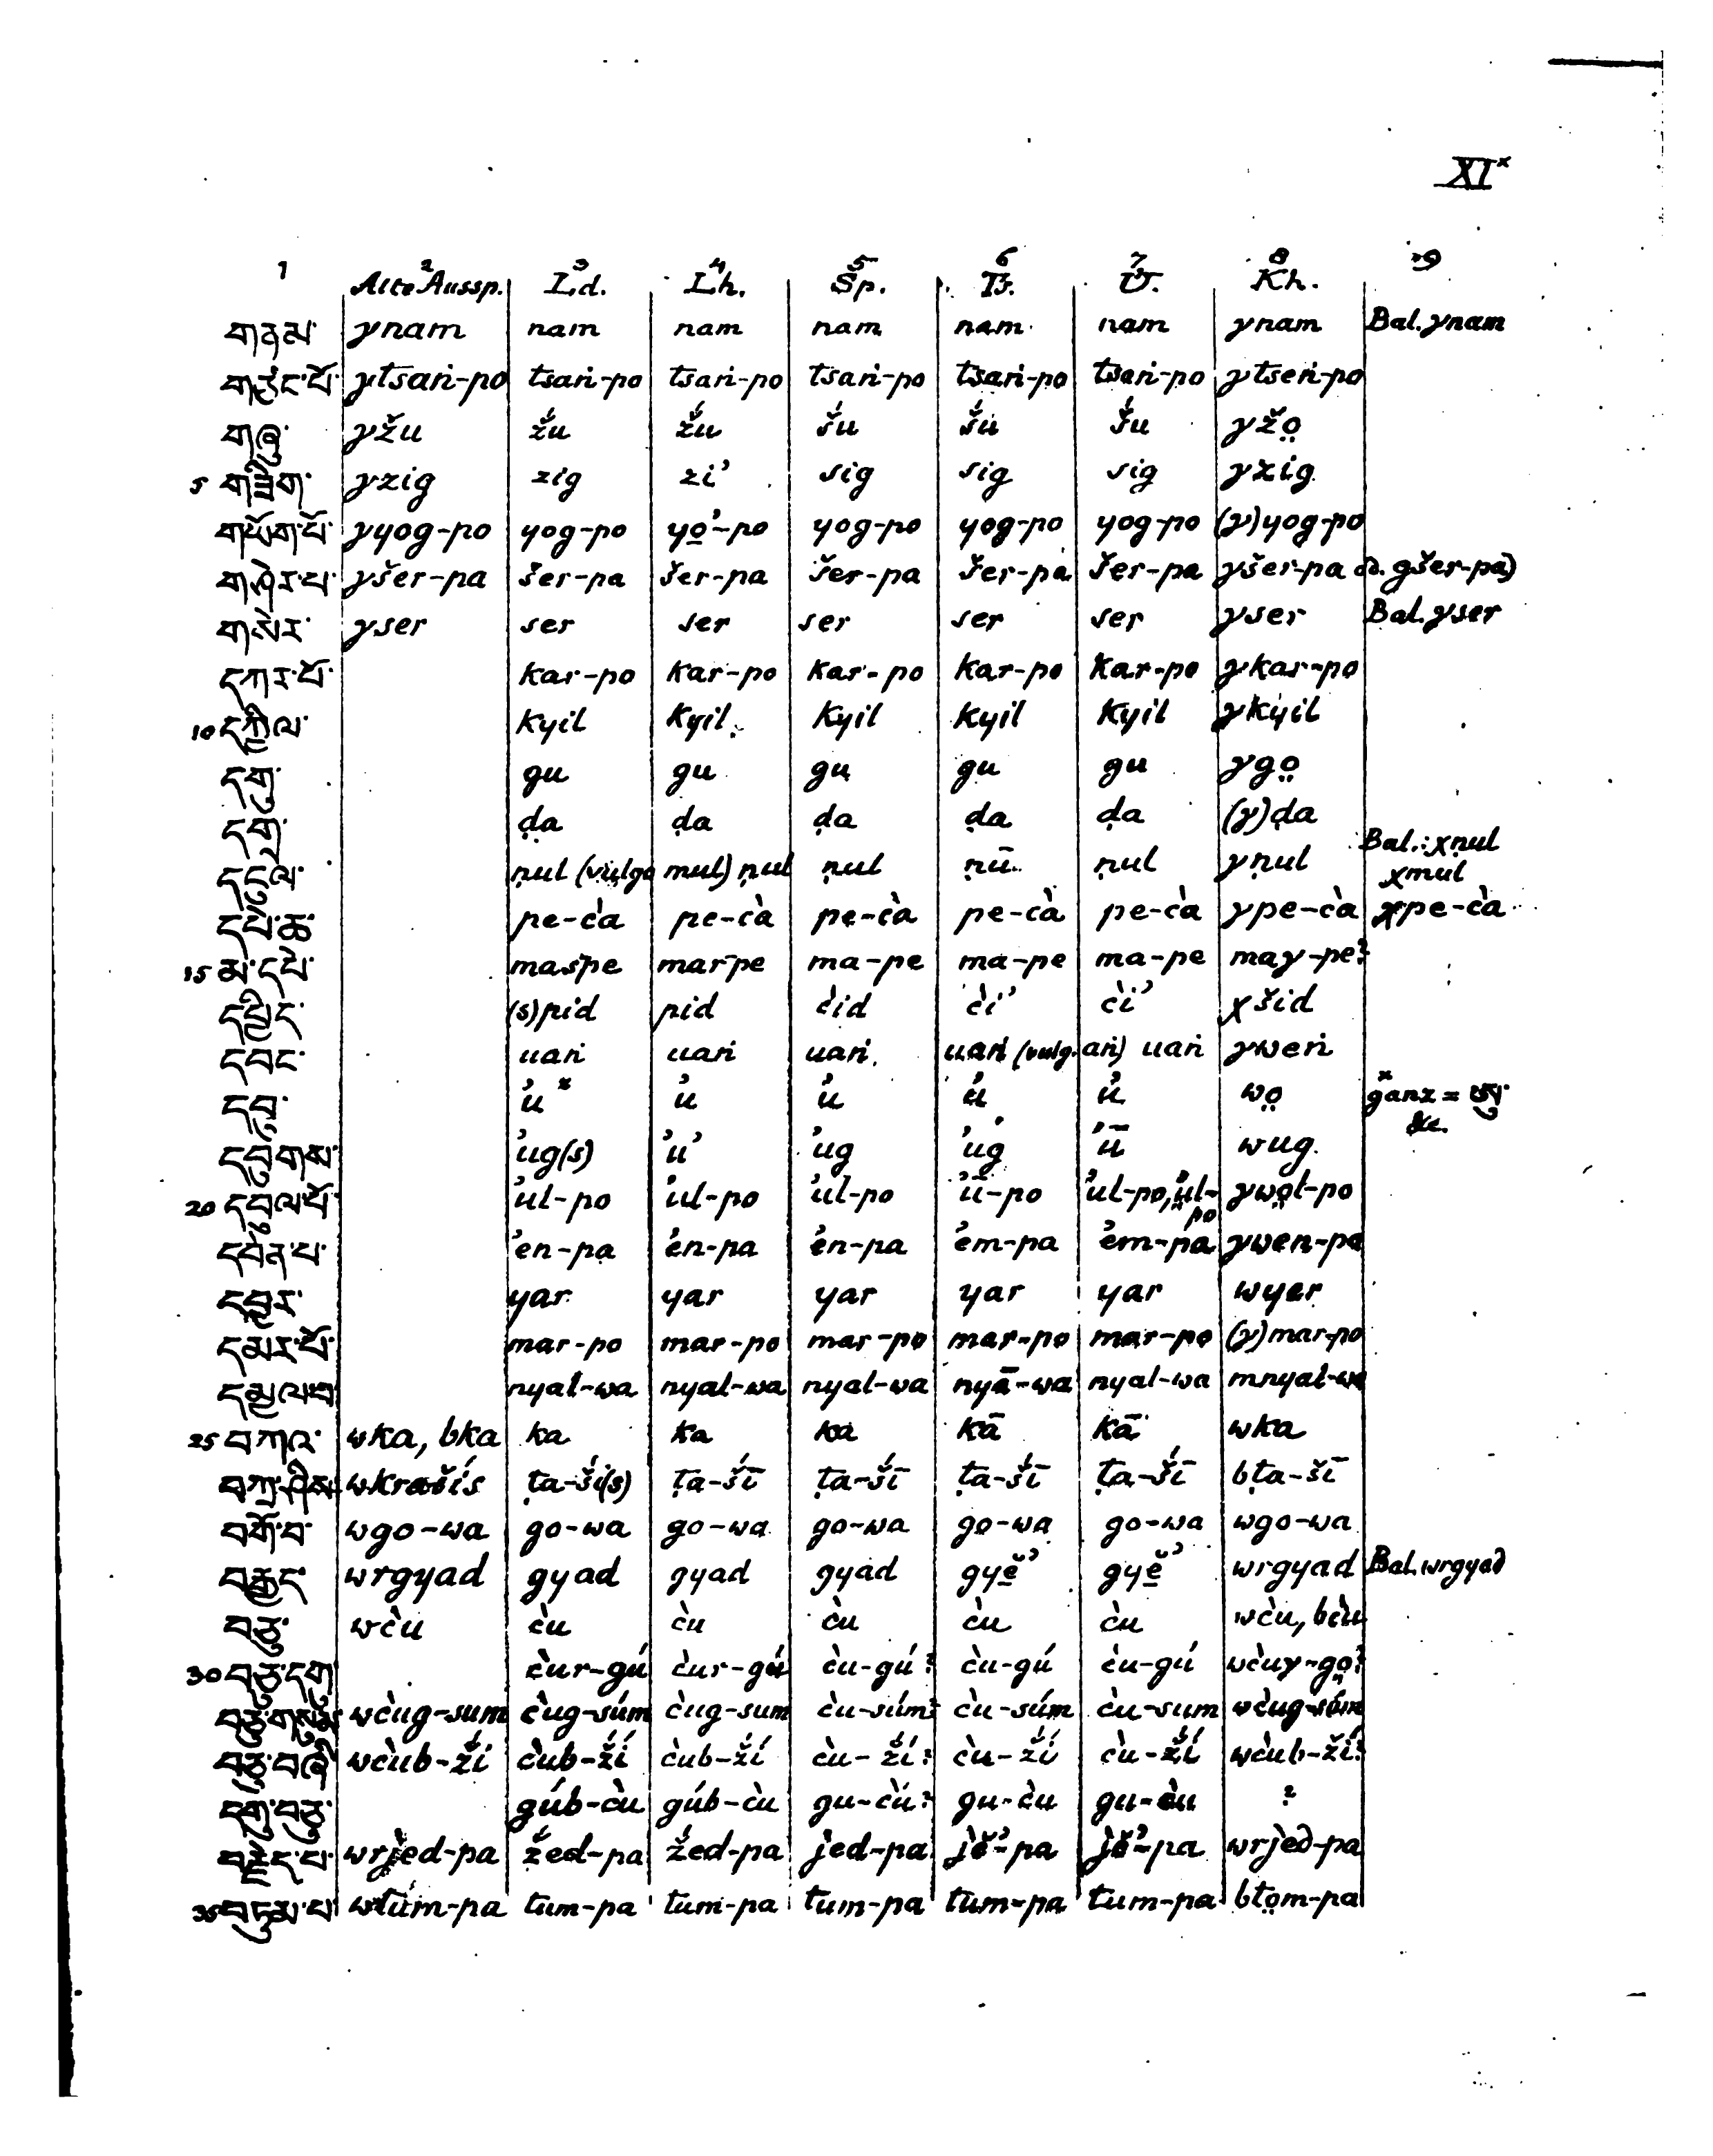 XI×
1 2 3 4 5 6 7 8 9
Alte Aussp. Ld. Lh. Sp. Tṣ. Ü. Kh.
གནམ་ γnam nam nam nam nam nam γnam Bal. γnam
གཙང་པོ་ γtsaṅ-po tsaṅ-po tsaṅ-po tsaṅ-po tsaṅ-po tsaṅ-po γtseṅ-po
གཞུ་ γžu žú žú šu šú šú γžo̤
5 གཟིག་ γzig zig zi’ sig sig sig γzig
གཡོག་པོ་ γyog-po yog-po yo̱’-po yog-po yog-po yog-po (γ)yog-po
གཤེར་པ་ γšer-pa šer-pa šer-pa šer-pa šer-pa šer-pa γšer-pa (od. gšer-pa)
གསེར་ γser ser ser ser ser ser γser Bal. γser
དཀར་པོ་ kar-po kar-po kar-po kar-po kar-po γkar-po
10 དཀྱིལ་ kyil kyil kyil kyil kyil γkyil
དགུ་ gu gu gu gu gu γgo̤
དགྲ་ ḍa ḍa ḍa ḍa ḍa (γ)ḍa
དངུལ་ ṇul (vulgo mul) ṇul ṇul ṇū ṇul γṇul Bal.: χṇul χmul
དཔེ་ཆ་ pe-c̀a pe-c̀a pe-c̀a pe-c̀a pe-c̀a γpe-c̀a χpe-c̀a
15 མ་དཔེ་ maspe marpe ma-pe ma-pe ma-pe maγ-pe?
དཔྱིད་ (s)pid pid c̀id c̀i’ c̀i’ χšid
དབང་ uaṅ uaṅ uaṅ uaṅ (vulg. aṅ) uaṅ γweṅ
དབུ་ ’u × ’u ’u ’u ’u wo̤ × ganz = ཨུ་ &c.
དབུགས་ ’ug(s) ’u’ ’ug ’ug ’ū wug
20 དབུལ་པོ་ ’ul-po ’ul-po ’ul-po ’ū-po ’ul-po, ’ül-po γwo̤l-po
དབེན་པ་ ’en-pa ’en-pa ’en-pa ’em-pa ’em-pa γwen-pa
དབྱར་ yar yar yar yar yar wyer
དམར་པོ་ mar-po mar-po mar-po mar-po mar-po (γ)mar-po
དམྱལ་བ་ nyal-wa nyal-wa nyal-wa nyā-wa nyal-wa mnyal-wa
25 བཀའ་ wka, bka ka ka ka kā kā wka
བཀྲ་ཤིས་ wkrašís ṭa-ší(s) ṭa-šī́ ṭa-šī́ ṭa-šī́ ṭa-šī́ bṭa-šī
བགོ་བ་ wgo-wa go-wa go-wa go-wa go-wa go-wa wgo-wa
བརྒྱད་ wrgyad gyad gyad gyad gyĕ̱’ gyĕ̱’ wrgyad Bal. wrgyad
བཅུ་ wc̀u c̀u c̀u c̀u c̀u c̀u wc̀u, bc̀u
30 བཅུ་དགུ c̀ur-gú c̀ur-gú c̀u-gú? c̀u-gú c̀u-gú wc̀uγ-go̤?
བཅུ་གསུམ་ wc̀ug-sum c̀ug-súm c̀ug-sum c̀u-súm? c̀u-súm c̀u-sum wc̀ug-súm
བཅུ་བཞི wc̀ub-ží c̀ub-ží c̀ub-ží c̀u-ží? c̀u-ží c̀u-ží wc̀ub-ží?
དགུ་བཅུ་ gúb-c̀u gúb-c̀u gu-c̀ú? gu-c̀u gu-c̀u ?
བརྗེད་པ་ wrj̀ed-pa žed-pa žed-pa j̀ed-pa j̀ĕ̱’-pa j̀ĕ̱’-pa wrjed-pa
35 བཏུམ་པ་ wtúm-pa tum-pa tum-pa tum-pa tum-pa tum-pa bto̤m-pa